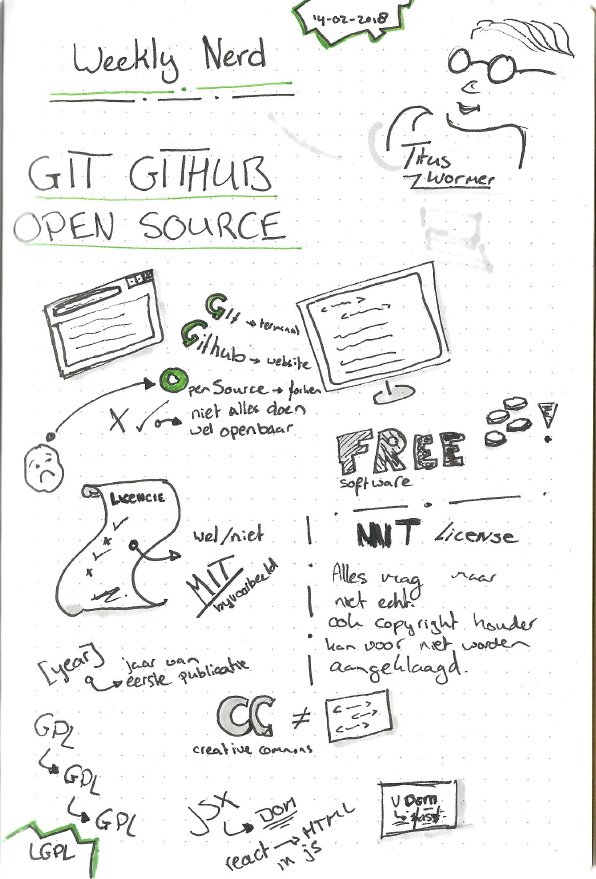 14-02-2018
Weekly Nerd
Titus
Wormer
GIT GITHUB
OPEN SOURCE
Git → terminal
Github → website
OpenSource → forken
X ✓ → niet alles doen
wel openbaar
FREE !
software
LICENCIE
wel/niet
MIT
bijvoorbeeld
MIT License
Alles mag maar
niet echt.
ook copyright houder
kan voor niet worden
aangeklaagd.
[year] jaar van
eerste publicatie
CC ≠
creative commons
GPL
GPL
GPL
LGPL
JSX
DOM
react → HTML
in js
V Dom